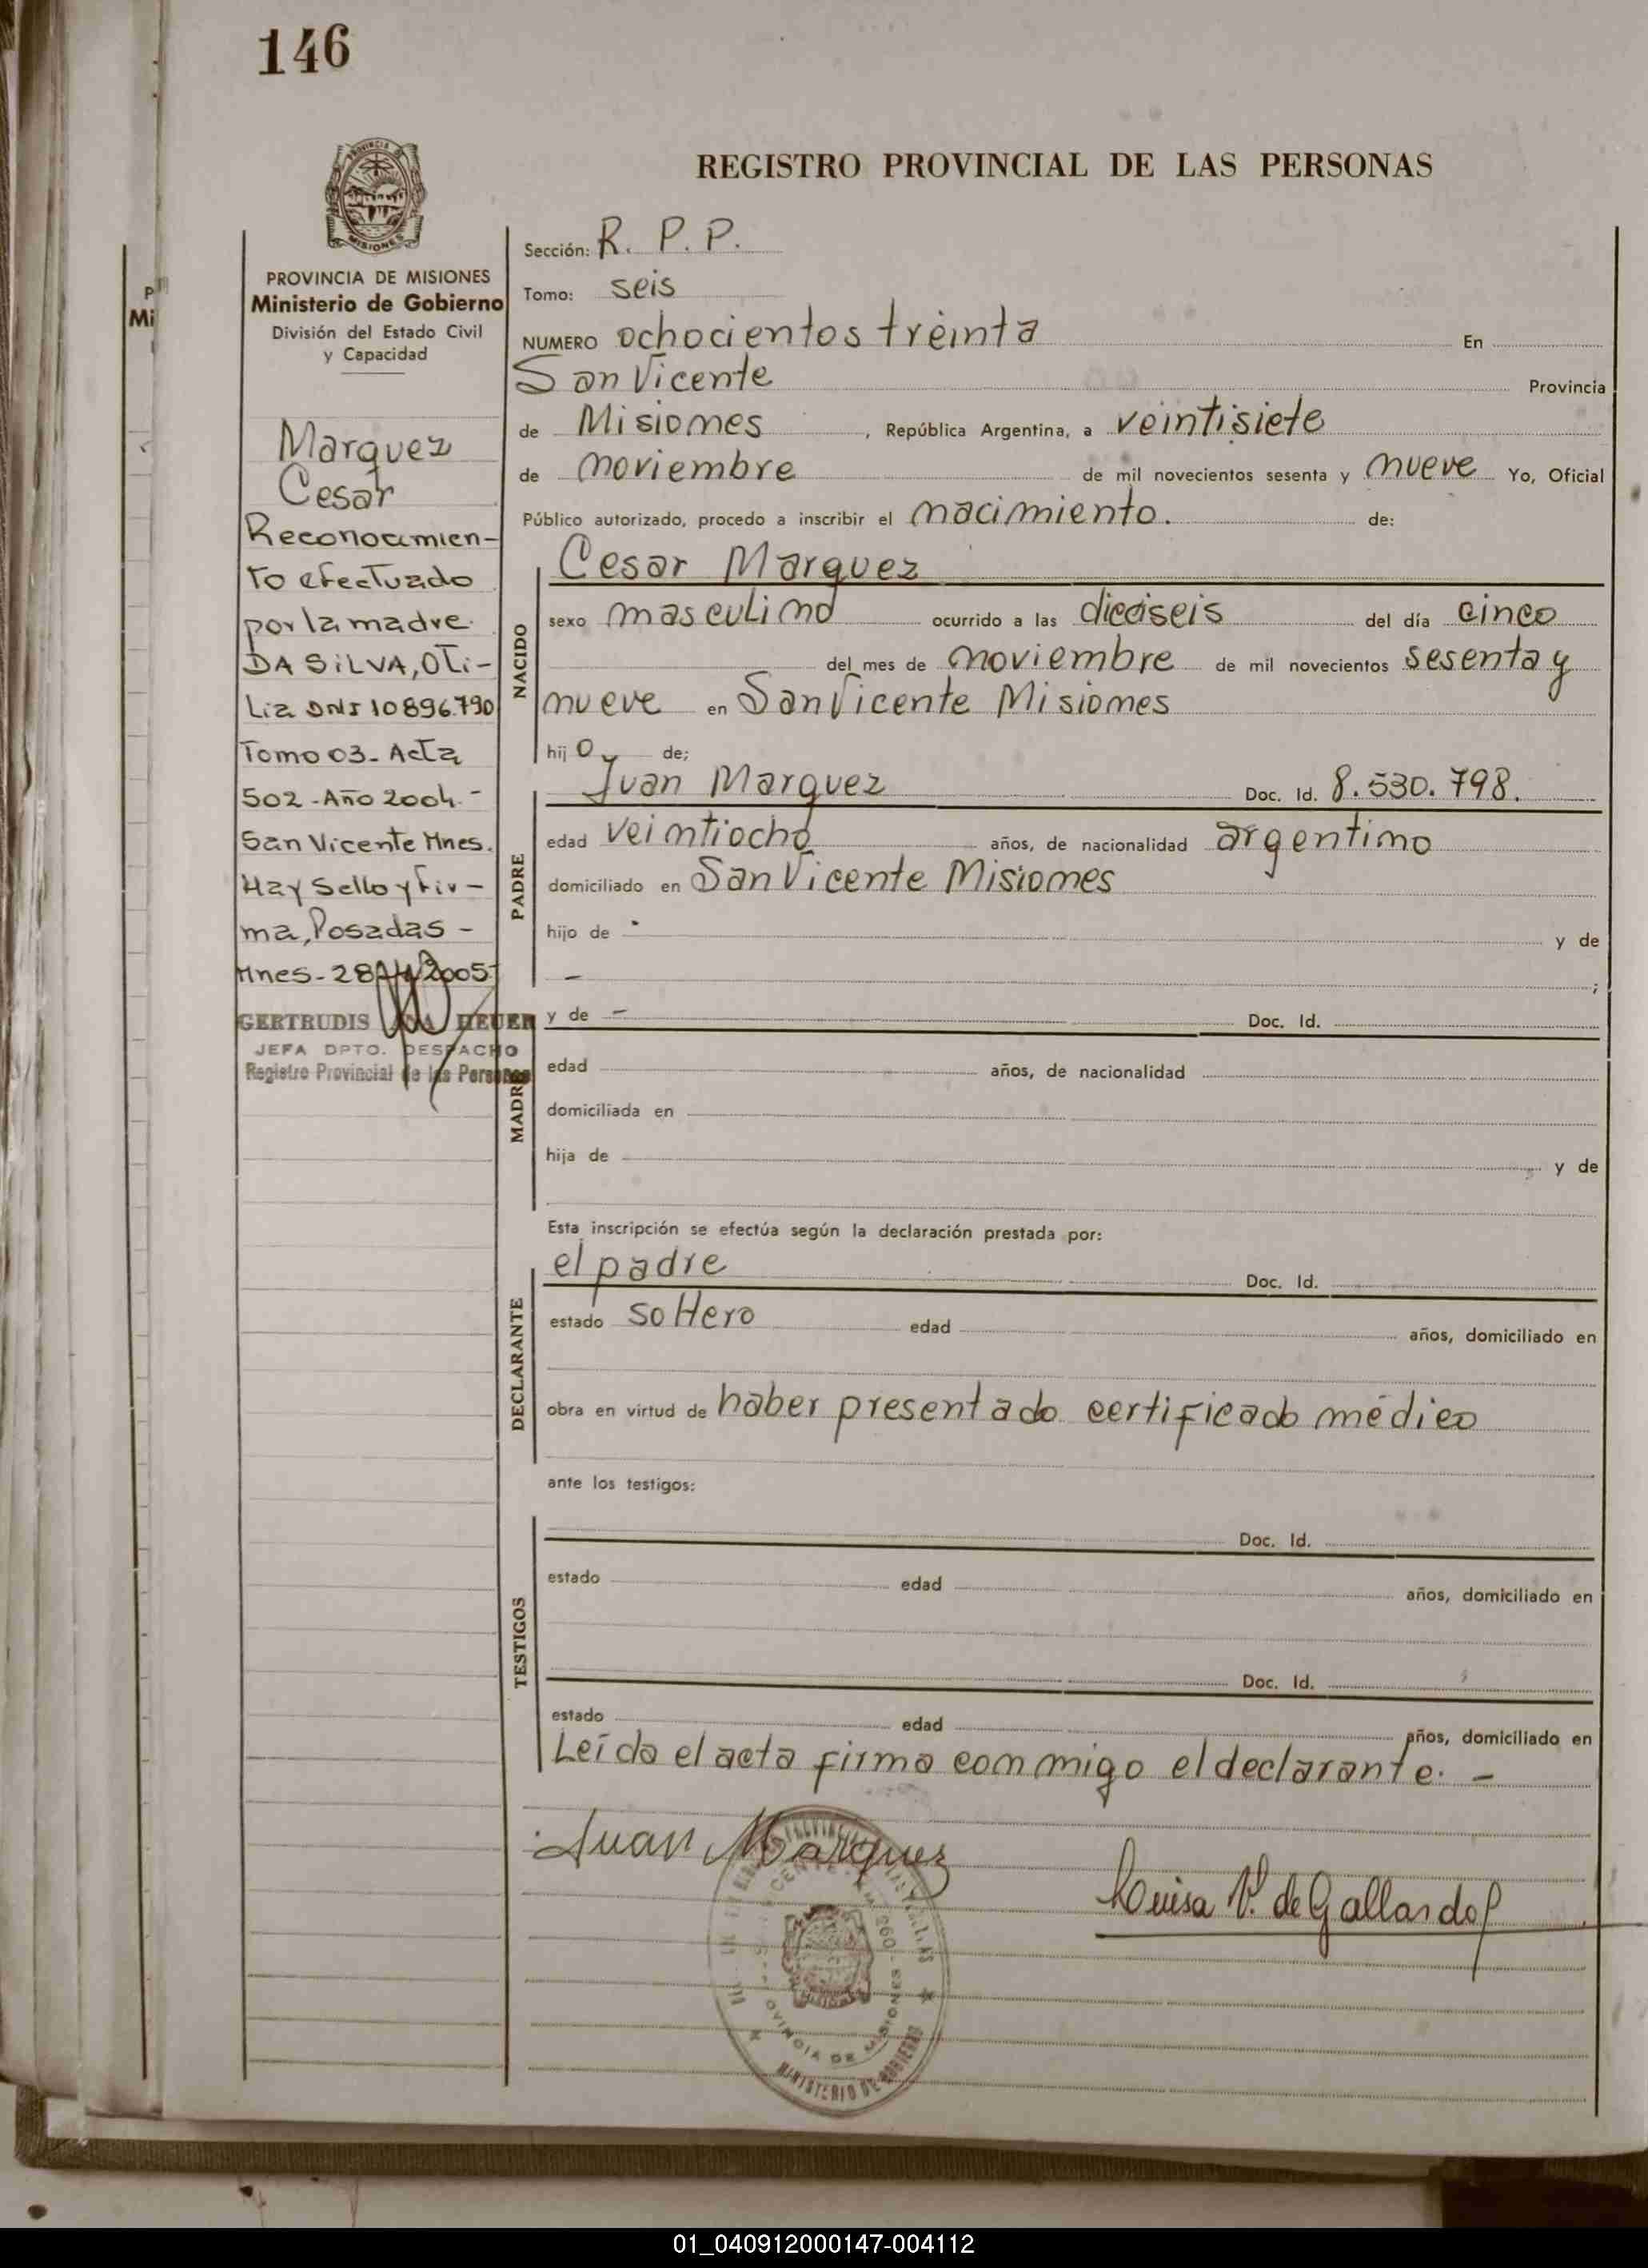 146
REGISTRO PROVINCIAL DE LAS PERSONAS
PROVINCIA DE MISIONES
Ministerio de Gobierno
División del Estado Civil
y Capacidad
Marquez
Cesar
Reconocimien-
to efectuado
por la madre
DA SILVA, OTi-
Lia DNI 10896.790
Tomo 03 - Acta
502 - Año 2004.-
San Vicente Mnes.
Hay Sello y Fir-
ma, Posadas -
Mnes - 28 2005-
GERTRUDIS HEUER
JEFA DPTO. DESPACHO
Registro Provincial de las Personas
Sección: R. P. P.
Tomo: seis
NUMERO ochocientos treinta En
San Vicente Provincia
de Misiones, República Argentina, a veintisiete
de noviembre de mil novecientos sesenta y nueve Yo, Oficial
Público autorizado, procedo a inscribir el nacimiento. de:
NACIDO
Cesar Marquez
sexo masculino ocurrido a las dieciseis del día cinco
del mes de noviembre de mil novecientos sesenta y
nueve en San Vicente Misiones
hijo de;
PADRE
Juan Marquez Doc. Id. 8.530.798.
edad veintiocho años, de nacionalidad argentino
domiciliado en San Vicente Misiones
hijo de - y de
- ;
MADRE
y de - Doc. Id.
edad años, de nacionalidad
domiciliada en
hija de y de
Esta inscripción se efectúa según la declaración prestada por:
DECLARANTE
el padre Doc. Id.
estado soltero edad años, domiciliado en
obra en virtud de haber presentado certificado médico
ante los testigos:
TESTIGOS
Doc. Id.
estado edad años, domiciliado en
Doc. Id.
estado edad años, domiciliado en
Leída el acta firma conmigo el declarante. -
Juan Marquez
Luisa V. de Gallardo
PROVINCIA DE MISIONES
MINISTERIO DE GOBIERNO
01_040912000147-004112